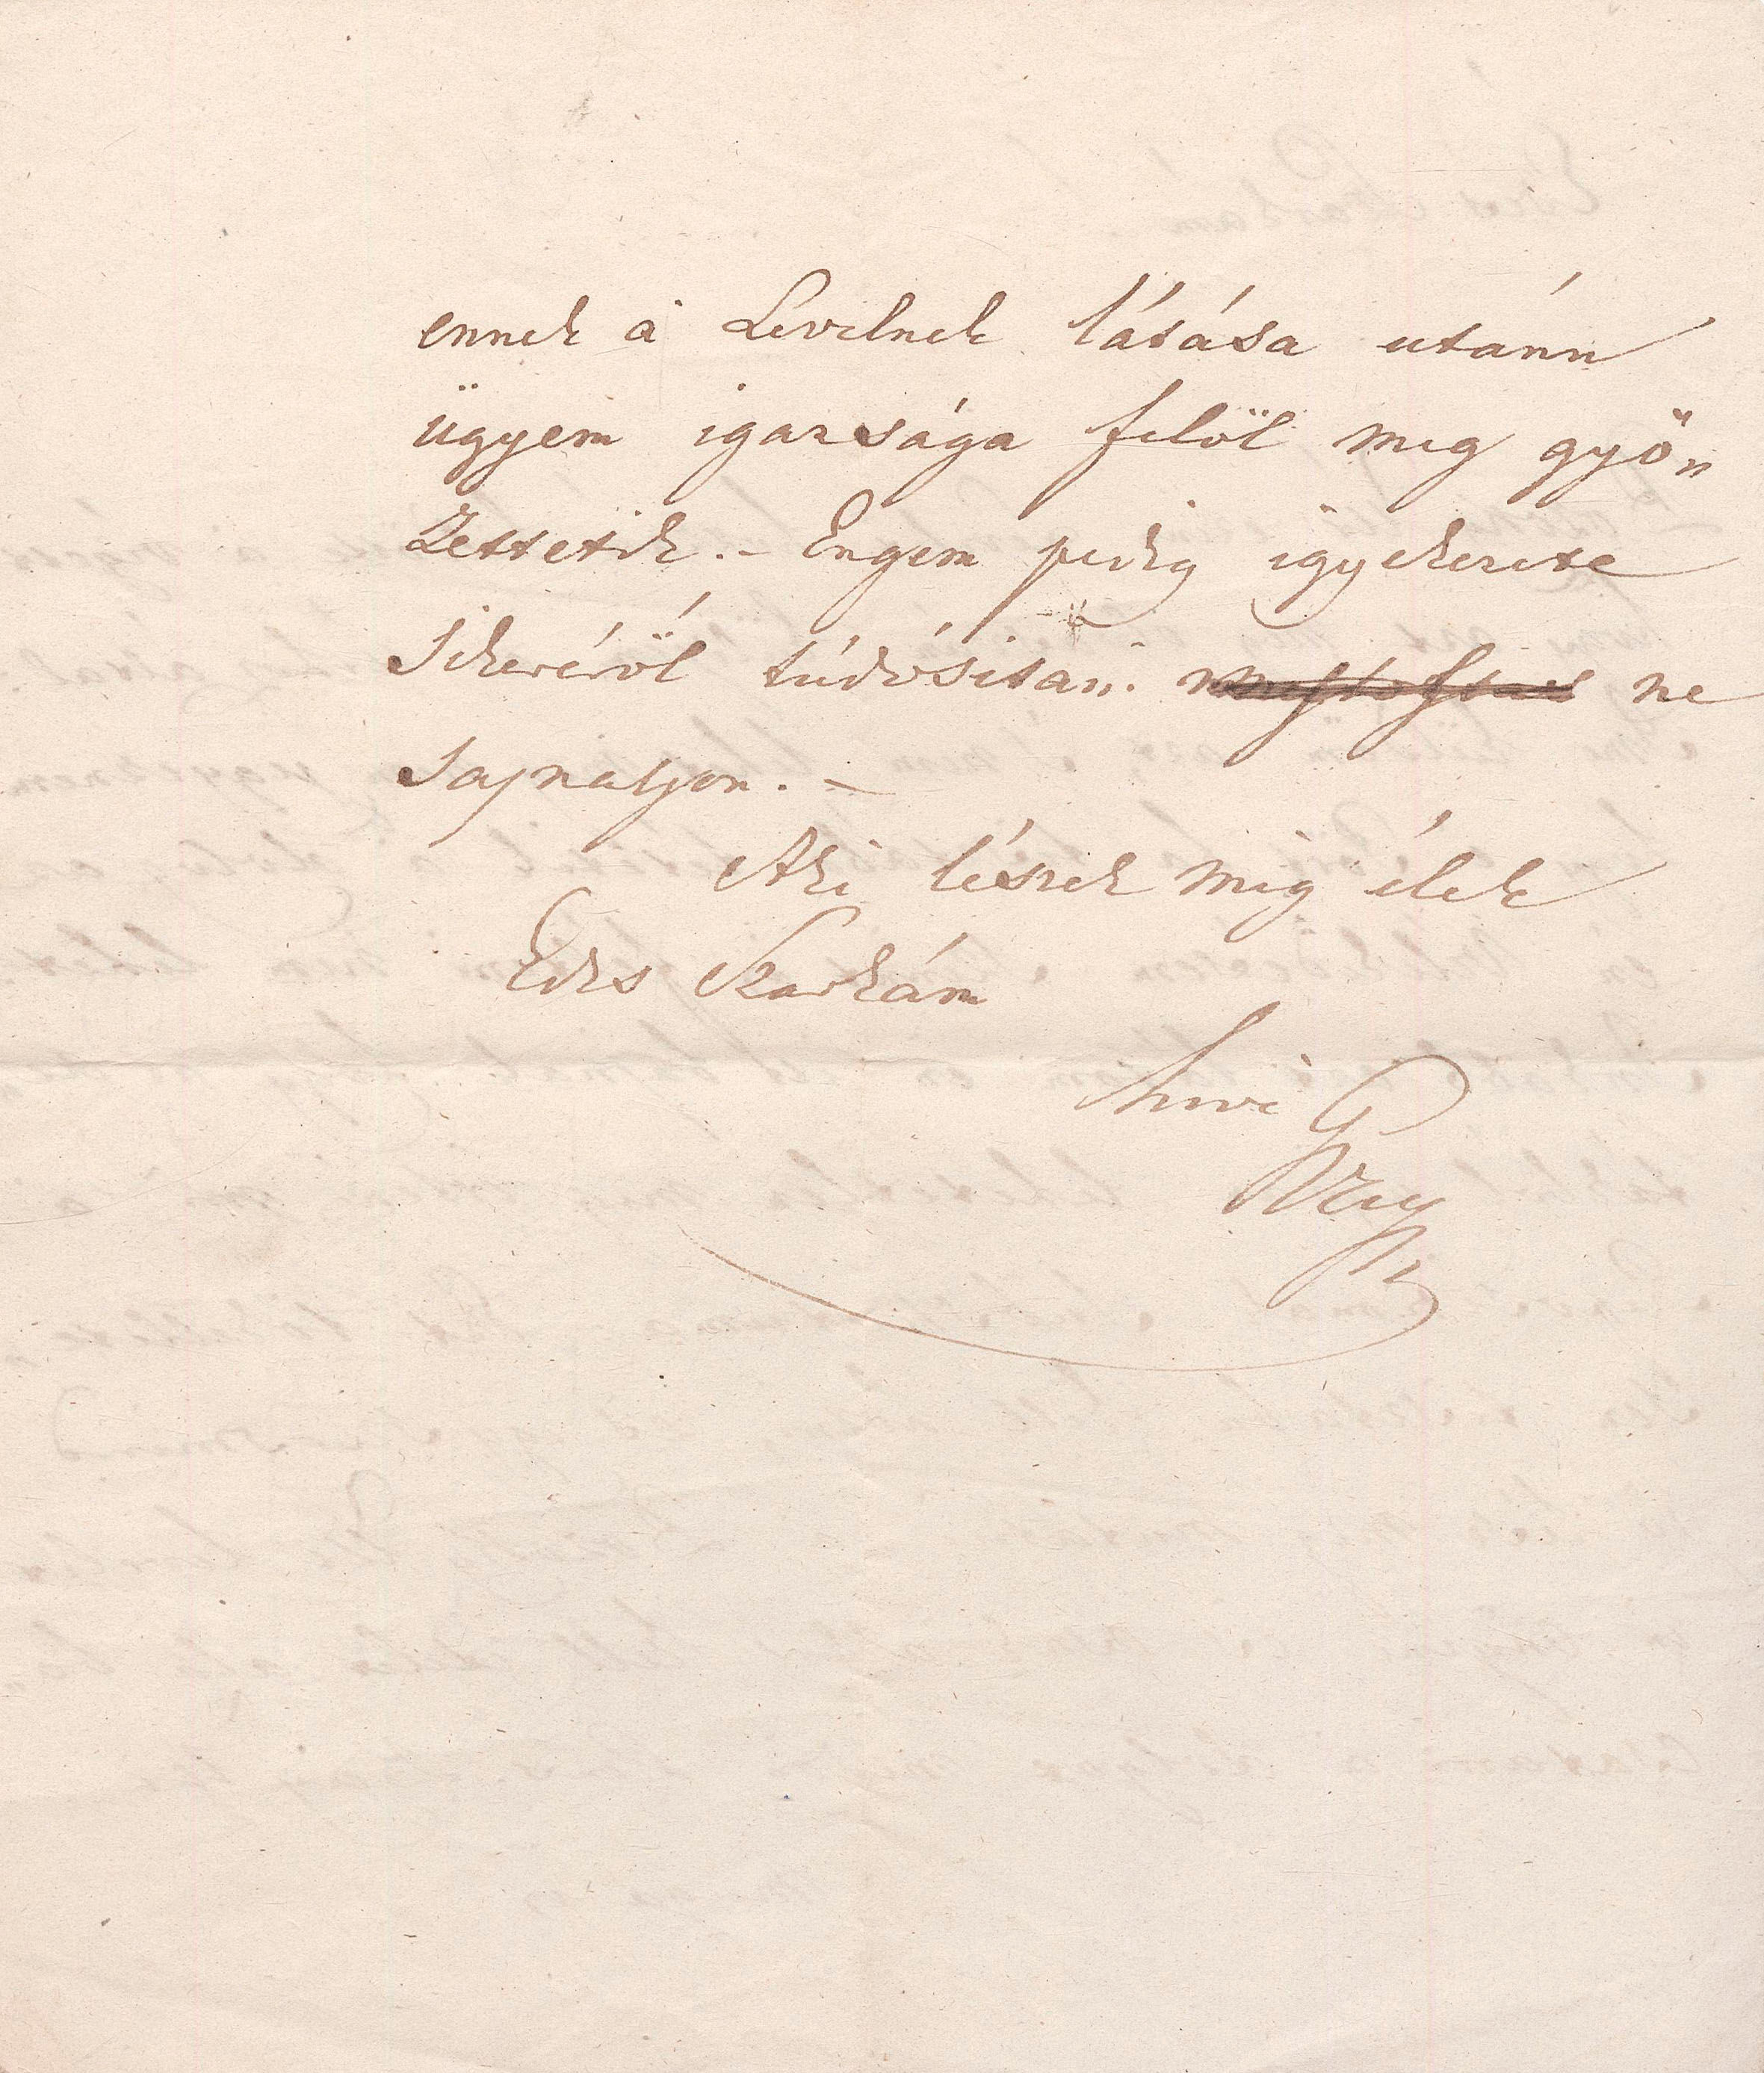 ennek à Levelnek látása utánn
ügyem igazsága felöl meg gyön„
zettetik. – Engem pedig igyekezete
sikeréröl túdósitani ne
sajnaljon. –
Aki lészek mig élek
Edes Szarkám
hive